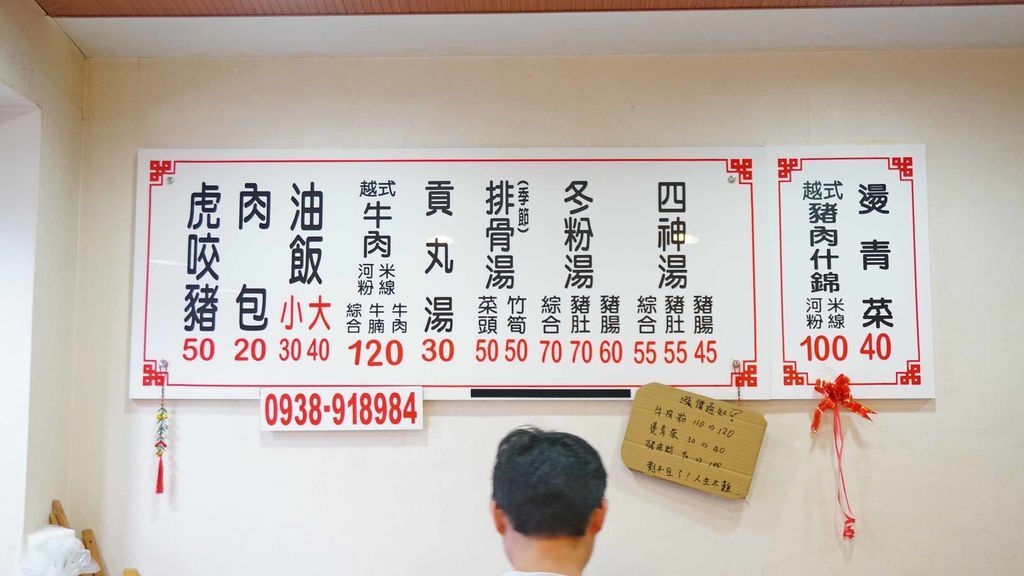 虎咬豬 50
肉包 20
油飯
小 30
大 40
越式
牛肉
河粉 米線
綜合 牛腩 牛肉
120
貢丸湯 30
排骨湯
(季節)
菜頭 50
竹筍 50
冬粉湯
綜合 70
豬肚 70
豬腸 60
四神湯
綜合 55
豬肚 55
豬腸 45
越式
豬肉什錦
河粉 米線
100
燙青菜 40
0938-918984
漲價通知
牛肉粉 110⇒120
燙青菜 30⇒40
豬肉粉 90⇒100
對不住了!人生太難